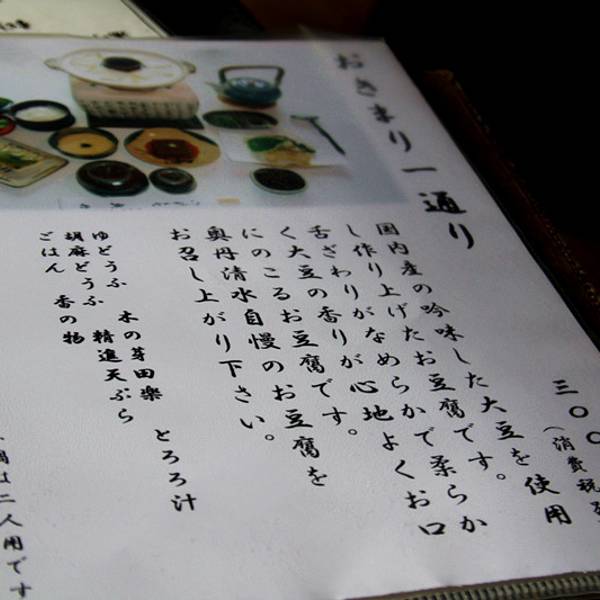 おきまり一通り
三〇〇
(消費税
国内産の吟味した大豆を使用
し作り上げたお豆腐です。柔らか
しざわりがなめらかで
舌ざわりが心地よくお口
く大豆の香りが
にのこるお豆腐です。
奥丹清水自慢のお豆腐を
お召し上がり下さい。
ゆどうふ 木の芽田楽 とろろ汁
胡麻どうふ 精進天ぷら
ごはん 香の物
用は二人用です